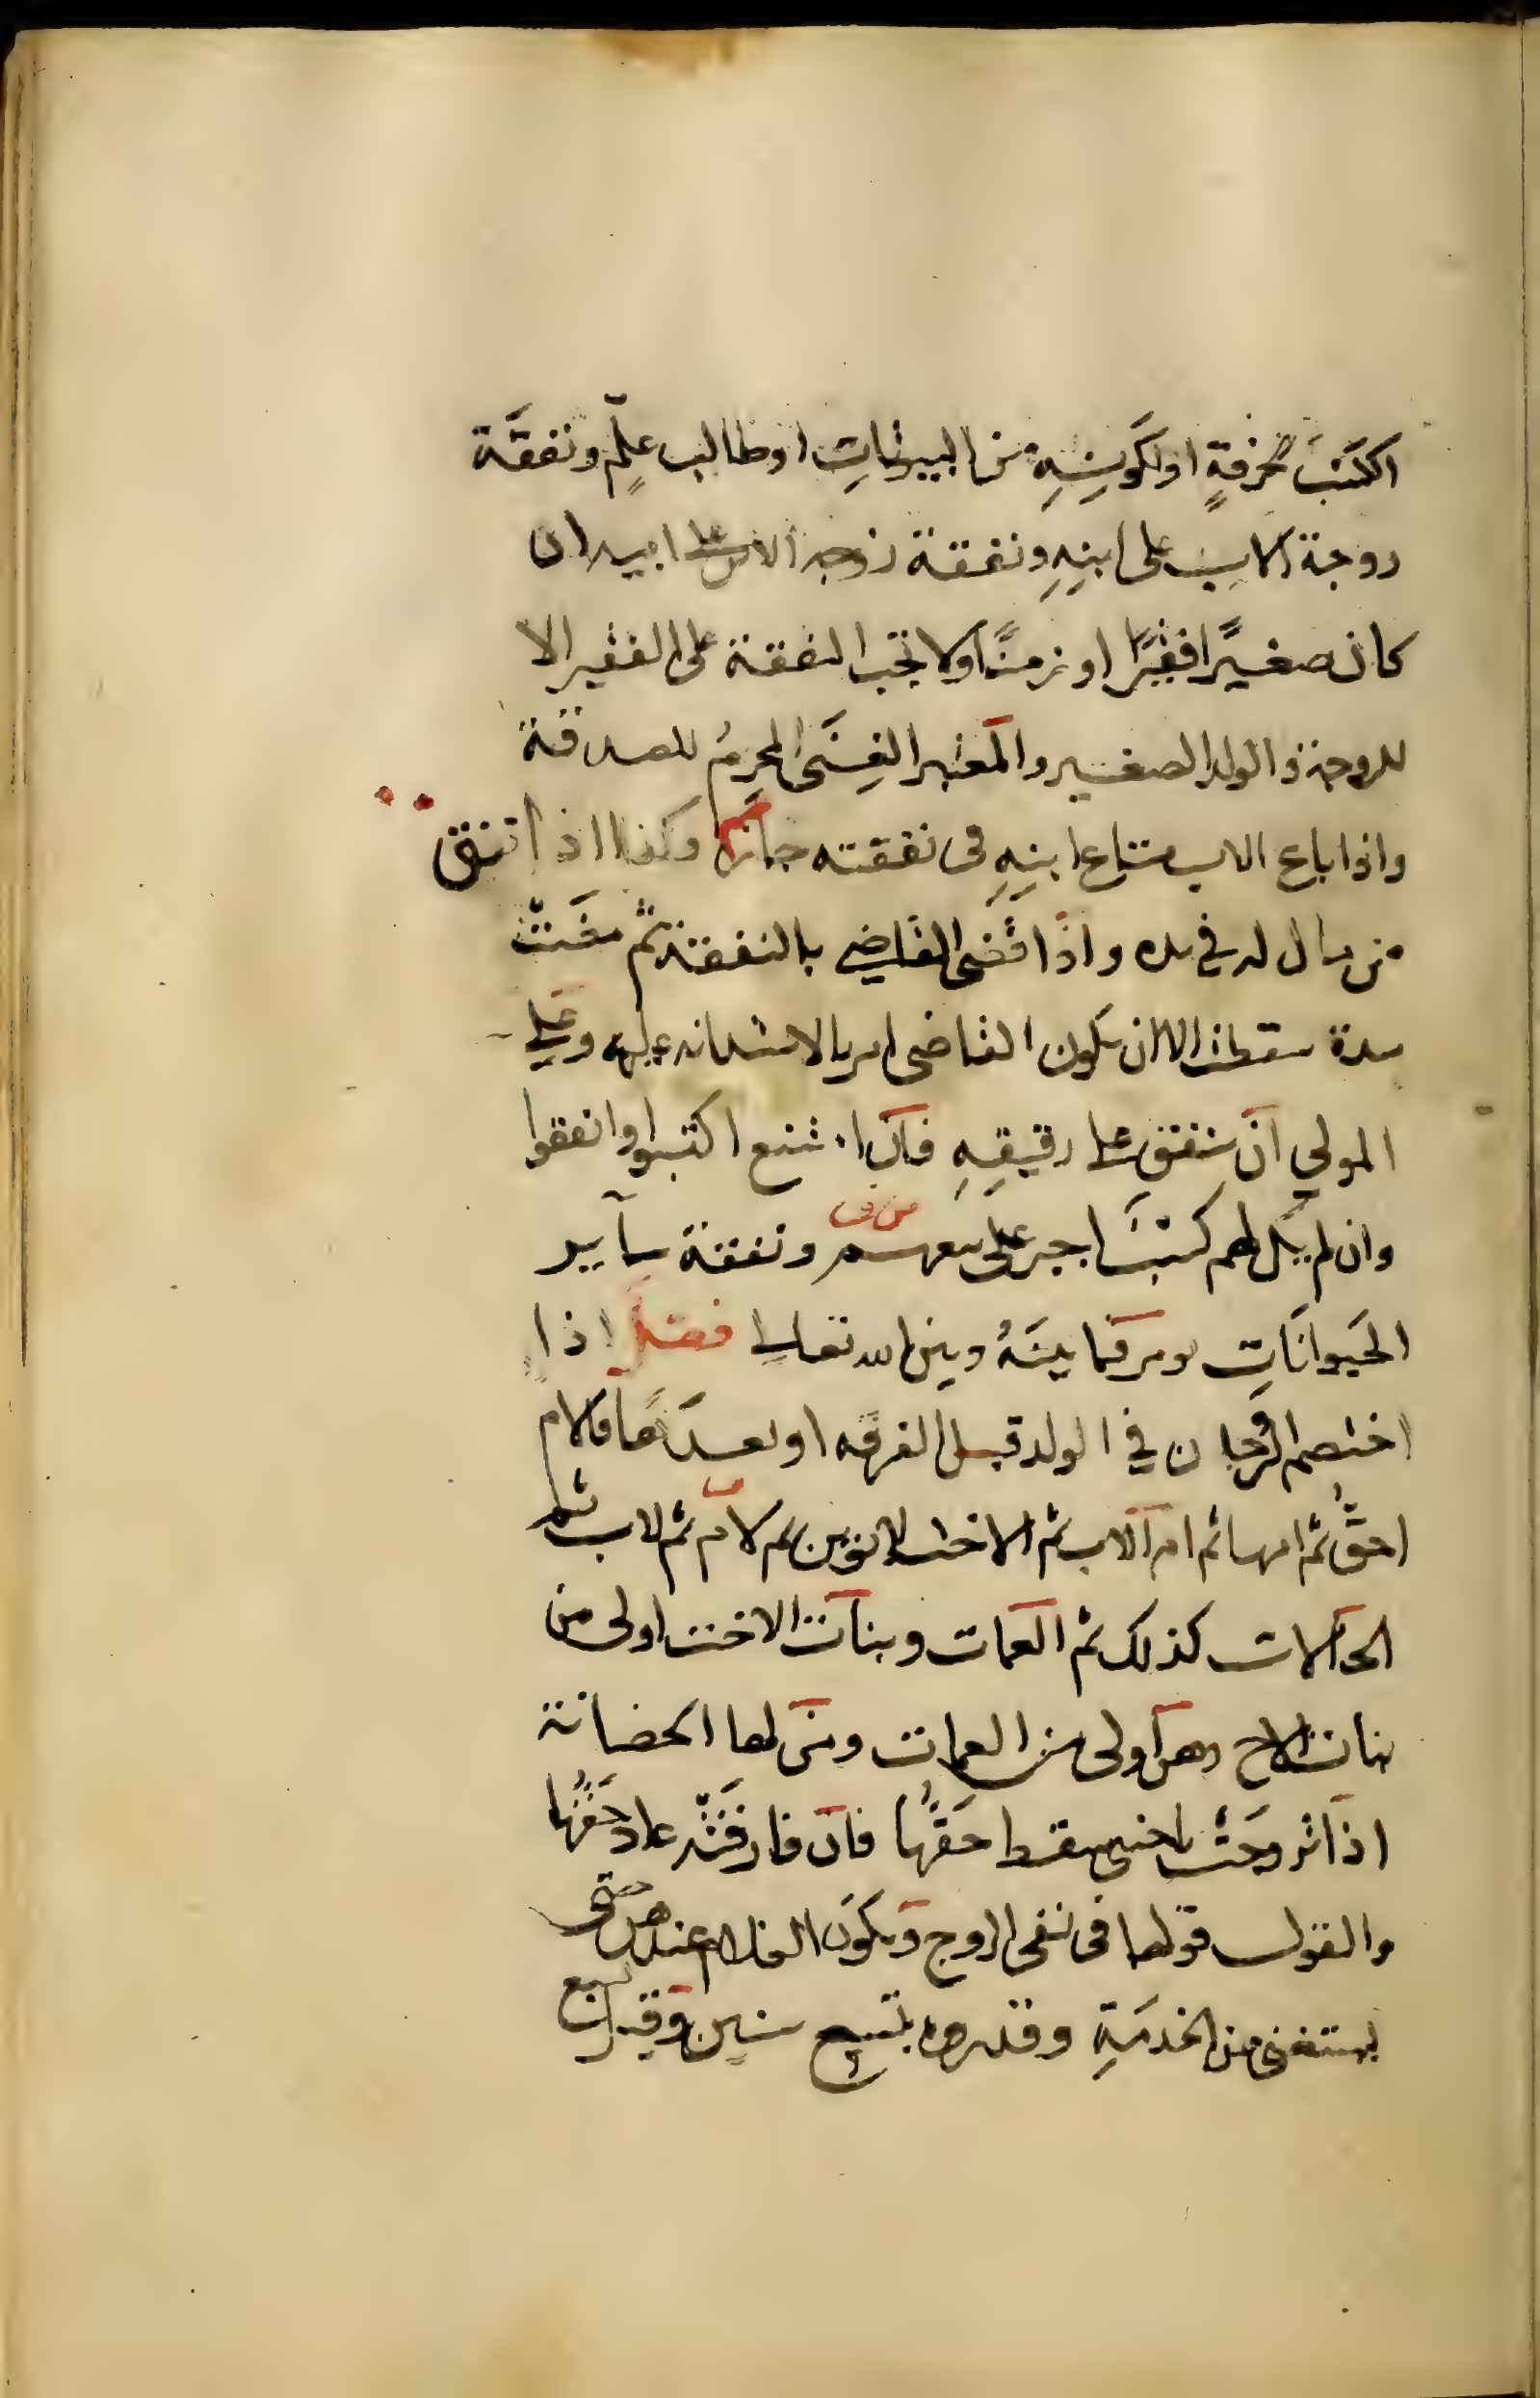 الكسب لخرقه او لكونه من البيوتات او طالب علم ونفقة
زوجة الاب على ابنه ونفقة زوجة الابن على ابيه ان
كان صغيرا فقيرا او زمنا ولا تجب النفقة على الفقير الا
للزوجة والولد الصغير والمعتبر الغنى المحرم للصدقة
واذا باع الاب متاع ابنه فى نفقته جاز وكذا اذا انفق
من مال له في يده واذا قضى القاضي بالنفقة ثم مضت
مدة سقطت الا ان يكون القاضى امر بالاستدانه عليه وعلى
المولى ان ينفق على رقيقه فان امتنع اكتسبوا وانفقوا
وان لم يكن لهم كسب اجبر على بيعهم ونفقة سآير
الحيوانات يومر فيما بينه وبين الله تعالى فصل اذا
اختصم الزوجان في الولد قبل الفرقه او بعدها فالام
احق ثم امها ثم ام الاب ثم الاخت لابوين ثم لام ثم لاب ثم
الخالات كذلك ثم العمات وبنات الاخت اولى من
بنات الاخ وهن اولى من العمات ومن لها الحضانة
اذا تزوجت باجنبى سقط حقها فان فارقته عاد حقها
والقول قولها فى نفى الزوج ويكون الغلام عندهن حتى
يستغنى عن الخدمة وقدره بتسع سنين وقيل سبع